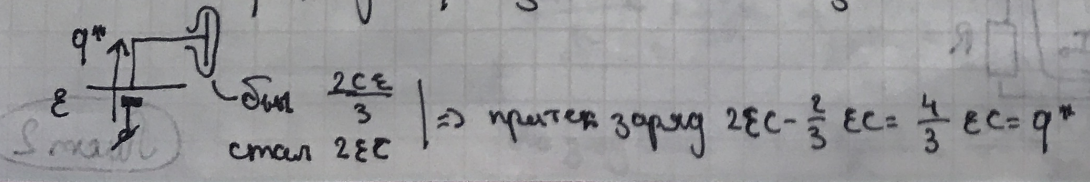 q*
ε
был 2Cε/3
стал 2εC
=> притек заряд 2εC - 2/3 εC = 4/3 εC = q*